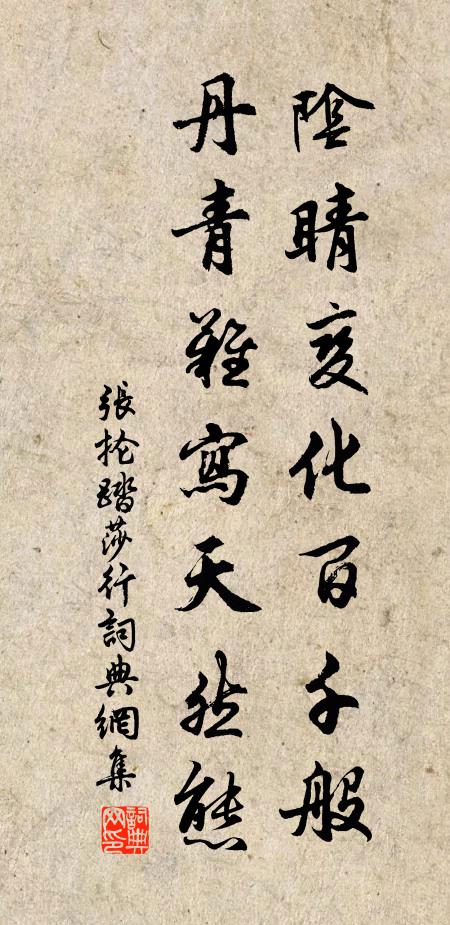 陰晴变化百千般
丹青難寫天然態
張抡踏莎行詞典網集
詞典网印